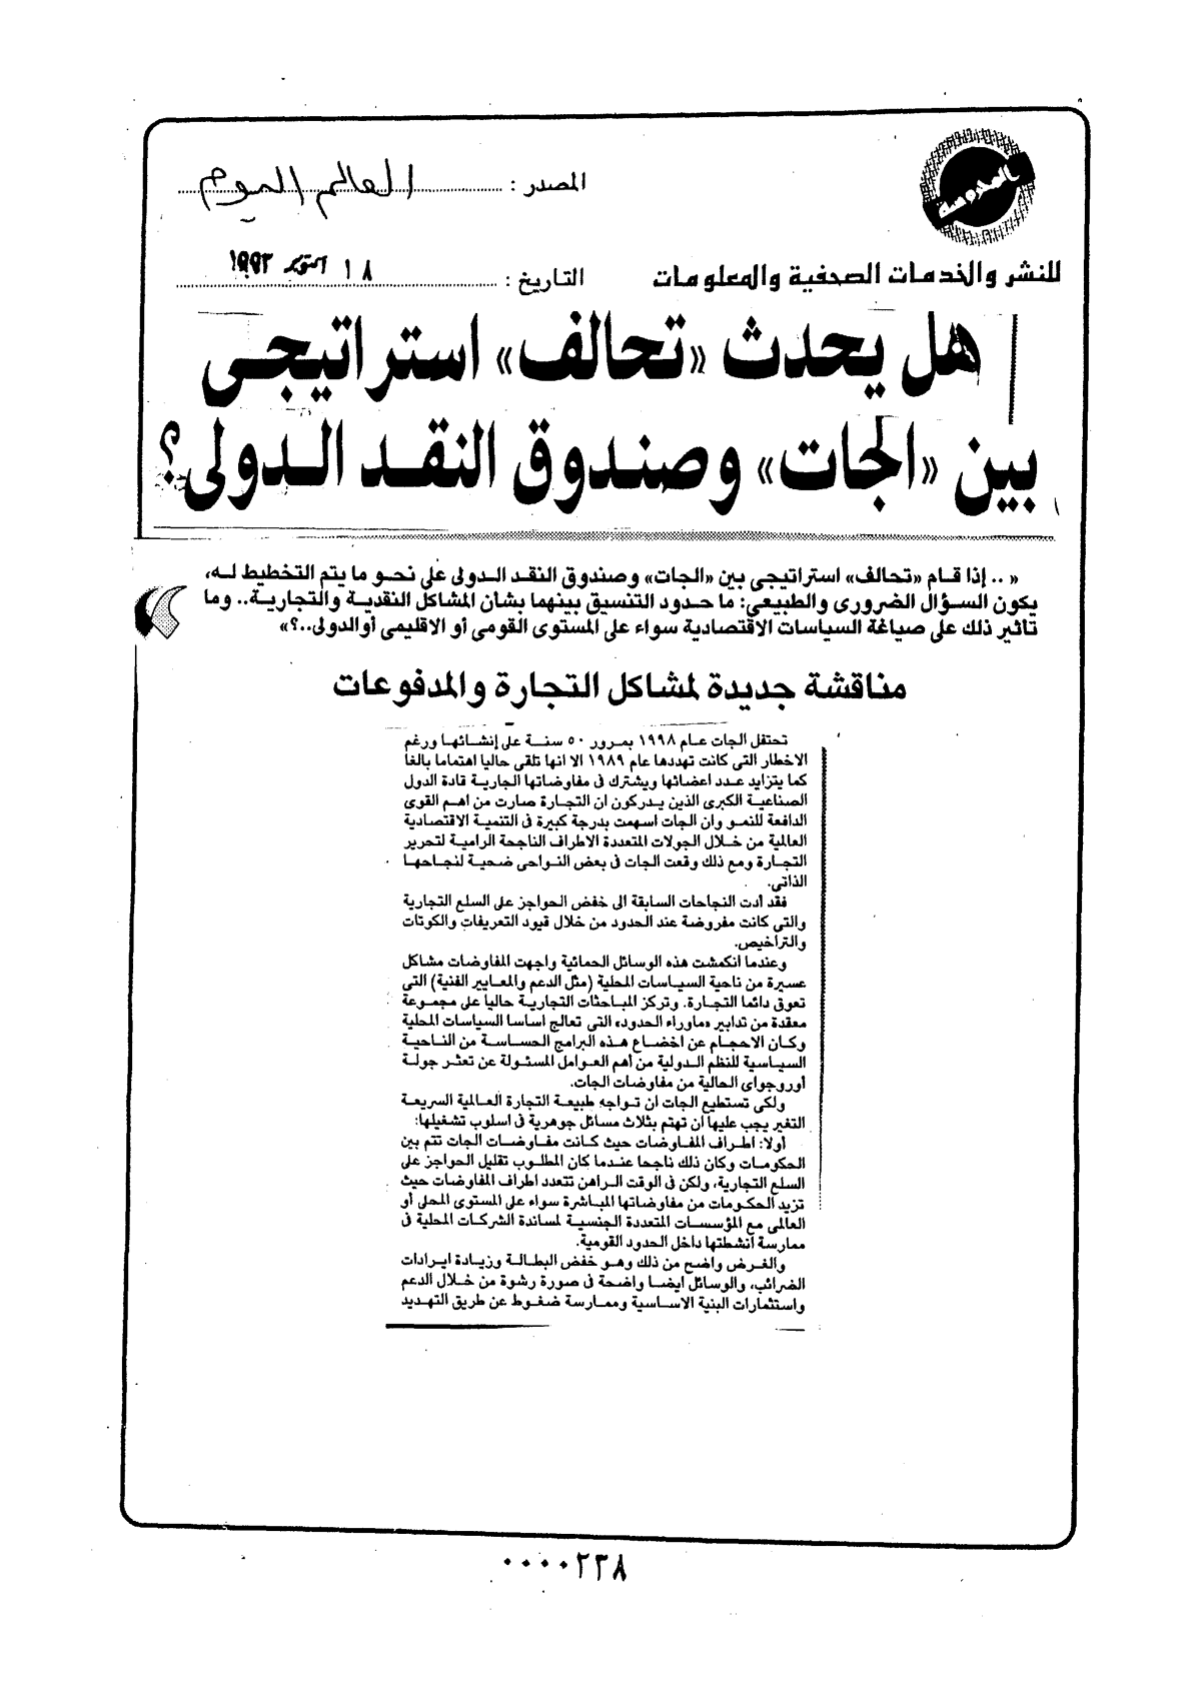 المصدر : العالم اليوم
للنشر والخدمات الصحفية والمعلومات
التاريخ : ١٨ اكتوبر ١٩٩٢
هل يحدث «تحالف» استراتيجى
بين «الجات» وصندوق النقد الدولى؟
« .. إذا قام «تحالف» استراتيجى بين «الجات» وصندوق النقد الدولى على نحو ما يتم التخطيط له،
يكون السؤال الضرورى والطبيعى: ما حدود التنسيق بينهما بشأن المشاكل النقدية والتجارية.. وما
تاثير ذلك على صياغة السياسات الاقتصادية سواء على المستوى القومى أو الاقليمى أو الدولى..؟»
مناقشة جديدة لمشاكل التجارة والمدفوعات
تحتفل الجات عام ١٩٩٨ بمرور ٥٠ سنة على إنشائها ورغم
الاخطار التى كانت تهددها عام ١٩٨٩ الا انها تلقى حاليا اهتماما بالغا
كما يتزايد عدد اعضائها ويشترك فى مفاوضاتها الجارية قادة الدول
الصناعية الكبرى الذين يدركون ان التجارة صارت من اهم القوى
الدافعة للنمو وان الجات اسهمت بدرجة كبيرة فى التنمية الاقتصادية
العالمية من خلال الجولات المتعددة الاطراف الناجحة الرامية لتحرير
التجارة ومع ذلك وقعت الجات فى بعض النواحى ضحية لنجاحها
الذاتى.
فقد ادت النجاحات السابقة الى خفض الحواجز على السلع التجارية
والتى كانت مفروضة عند الحدود من خلال قيود التعريفات والكوتات
والتراخيص.
وعندما انكمشت هذه الوسائل الحمائية واجهت المفاوضات مشاكل
عسيرة من ناحية السياسات المحلية (مثل الدعم والمعايير الفنية) التى
تعوق دائما التجارة. وتركز المباحثات التجارية حاليا على مجموعة
معقدة من تدابير «ماوراء الحدود» التى تعالج اساسا السياسات المحلية
وكان الاحجام عن اخضاع هذه البرامج الحساسة من الناحية
السياسية للنظم الدولية من أهم العوامل المسئولة عن تعثر جولة
أوروجواى الحالية من مفاوضات الجات.
ولكى تستطيع الجات ان تواجه طبيعة التجارة العالمية السريعة
التغير يجب عليها ان تهتم بثلاث مسائل جوهرية فى اسلوب تشغيلها:
أولا: اطراف المفاوضات حيث كانت مفاوضات الجات تتم بين
الحكومات وكان ذلك ناجحا عندما كان المطلوب تقليل الحواجز على
السلع التجارية، ولكن فى الوقت الراهن تتعدد اطراف المفاوضات حيث
تزيد الحكومات من مفاوضاتها المباشرة سواء على المستوى المحلى أو
العالمى مع المؤسسات المتعددة الجنسية لمساندة الشركات المحلية فى
ممارسة انشطتها داخل الحدود القومية.
والغرض واضح من ذلك وهو خفض البطالة وزيادة ايرادات
الضرائب، والوسائل ايضا واضحة فى صورة رشوة من خلال الدعم
واستثمارات البنية الاساسية وممارسة ضغوط عن طريق التهديد
٠٠٠٠٢٣٨